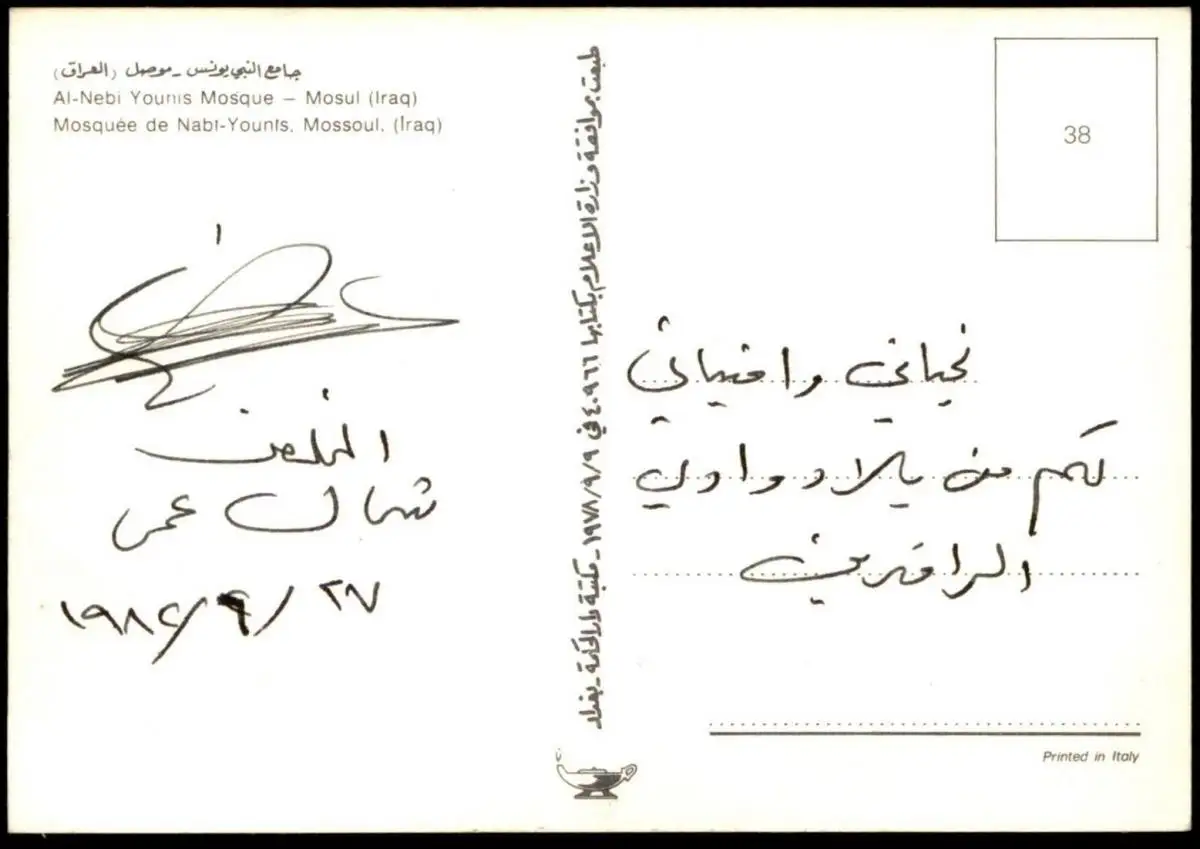 جامع النبي يونس - موصل (العراق)
Al-Nebi Younis Mosque – Mosul (Iraq)
Mosquée de Nabi-Younis. Mossoul. (Iraq)
المخلص
شمال عمر
٢٧/٩/١٩٨٤
طبعت بموافقة وزارة الاعلام بكتابها ٤٠٩٦٦ في ١٩٧٨/٩/٩ - مكتبة دار الحكمة - بغداد
38
تحياتي وامنياتي
لكم من بلاد وادي
الرافدين
Printed in Italy